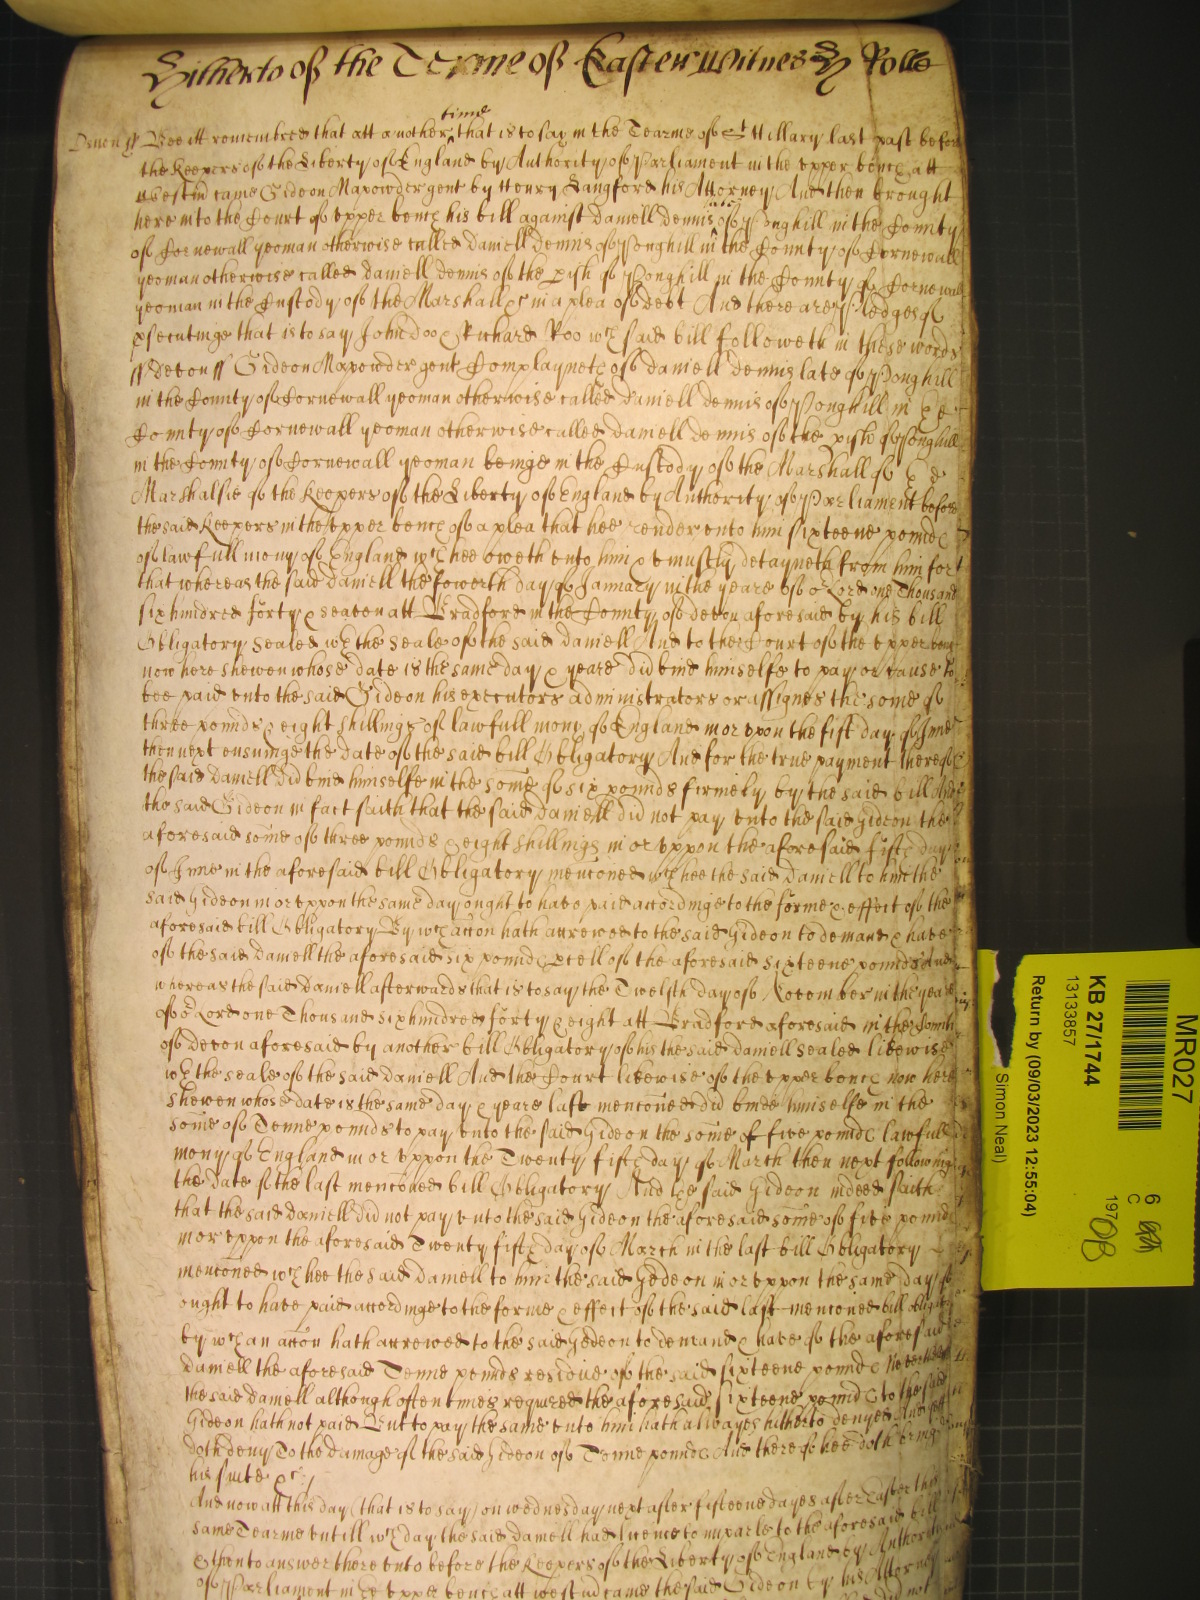 Hitherto of the Terme of Easter Witnes H Rolle
time
Devon ss Bee itt remembred that att another that is to say in the Tearme of St Hillary last past before
the Keepers of the Liberty of England by Authority of Parliament in the upper bench att
Westm came Gideon Mapowder gent by Henry Langford his Attorney And then brought
here into the Court of upper bench his bill against daniell dennis late of Ponghill in the County
of Cornewall yeoman otherwise called daniell dennis of Ponghill in the County of Cornewall
yeoman otherwise called daniell dennis of the pish of Ponghill in the County of Cornewall
yeoman in the Custody of the Marshall &c in a plea of debt And there are Pledges of
psecutinge that is to say John doo & Richard Roo wch said bill followeth in these words
ss devon ss Gideon Mapowder gent Complayneth of daniell dennis late of Ponghill
in the County of Cornewall yeoman otherwise called daniell dennis of Ponghill in the
County of Cornewall yeoman otherwise called daniell dennis of the pish of Ponghill
in the County of Cornewall yeoman beinge in the Custody of the Marshall of the
Marshalsie of the Keepers of the Liberty of England by Authority of Parliament before
the said Keepers in the upper bench of a plea that hee render unto him sixteene pounds
of lawfull mony of England wch hee oweth unto him & uniustly detayneth from him for
that whereas the said daniell the fowerth day of January in the yeare of or Lord one Thousand
six hundred forty & seaven att Bradford in the County of devon aforesaid by his bill
Obligatory sealed wth the seale of the said daniell And to the Court of the upper bench
now here shewen whose date is the same day & yeare did bind himselfe to pay or cause to
bee paid unto the said Gideon his executors administrators or assignes the some of
three pounds & eight shillings of lawfull mony of England in or upon the fift day of June
then next ensuinge the date of the said bill Obligatory And for the true payment thereof
the said daniell did bind himselfe in the some of six pounds firmely by the said bill And
the said Gideon in fact saith that the said daniell did not pay unto the said Gideon the
aforesaid some of three pounds & eight shillings in or uppon the aforesaid fifth day
of June in the aforesaid bill Obligatory menconed wch hee the said daniell to him the
said Gideon in or uppon the same day ought to have paid accordinge to the forme & effect of the
aforesaid bill Obligatory By wch accon hath accrewed to the said Gideon to demand & have
of the said daniell the aforesaid six pounds pcell of the aforesaid sixteene pounds And
whereas the said daniell afterwards that is to say the Twelfth day of November in the yeare
of or Lord one Thousand six hundred forty & eight att Bradford aforesaid in the County
of devon aforesaid by another bill Obligatory of his the said daniell sealed likewise
wth the seale of the said daniell And the Court likewise of the upper bench now here
shewen whose date is the same day & yeare last menconed did bind himselfe in the
some of Tenne pounds to pay unto the said Gideon the some of five pounds lawfull
mony of England in or uppon the Twenty fifth day of March then next following
the date of the last menconed bill Obligatory And the said Gideon indeed saith
that the said daniell did not pay unto the said Gideon the aforesaid some of five pounds
in or uppon the aforesaid Twenty fifth day of March in the last bill Obligatory
menconed wch hee the said daniell to him the said Gedeon in or uppon the same day
ought to have paid accordinge to the forme & effect of the said last menconed bill obligatory
by wch an accon hath accrewed to the said Gedeon to demand & have of the aforesaid
daniell the aforesaid Tenne pounds residue of the said sixteene pounds Neverthelesse
the said daniell although oftentimes required the aforesaid sixteene pounds to the said
Gideon hath not paid But to pay the same unto him hath alwayes hitherto denyed And yett
doth deny To the damage of the said Gideon of Tenne pounds And thereof hee doth bringe
his suite &c
And now att this day (that is to say) on wednesday next after fifteene dayes after Easter this
same Tearme untill wch day the said daniell had licence to imparle to the aforesaid bill
& then to answer there unto before the Keepers of the Liberty of England by Authority
of Parliament in the upper bench att westm came the said Gideon by his Attorney
MR027
KB 27/1744
13133857
Return by (09/03/2023 12:55:04)
Simon Neal)
6
C
197